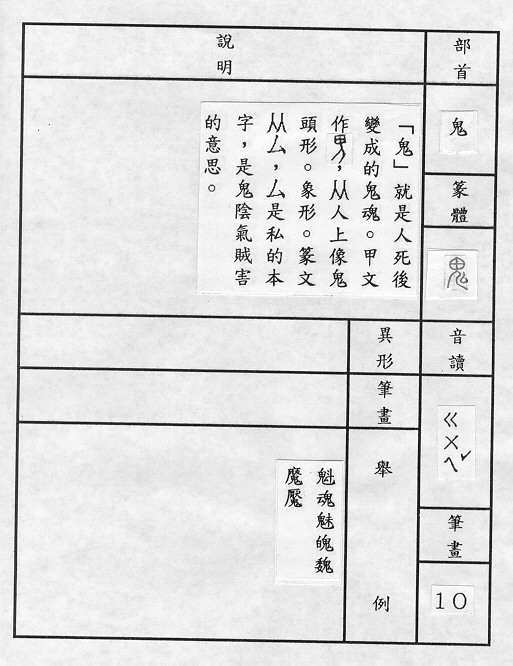 部首
鬼
篆體
鬼
音讀
ㄍㄨㄟˇ
筆畫
10
說明
「鬼」就是人死後
變成的鬼魂。甲文
作,从人上像鬼
頭形。象形。篆文
从厶,厶是私的本
字,是鬼陰氣賊害
的意思。
異形
筆畫
舉例
魁魂魅魄魏
魔魘